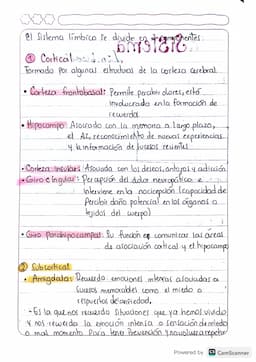 El Sistema límbico se divide en componentes:
① Cortical
Formado por algunas estructuras de la corteza cerebral
• Corteza frontobasal: Permite percibir olores, está
involucrada en la formación de
recuerdo
• Hipocampo: Asociado con la memoria a largo plazo,
el AE, reconocimiento de nuevas experiencias
y la información de sucesos recientes
• Corteza insular: Asociada con los deseos, antojos y adicción
• Giro cingular: Percepción del dolor neuropático e
interviene en la nocicepción (capacidad de
Percibir daño potencial en los organos o
tejidos del cuerpo)
• Giro parahipocampal: Su función es comunicar las áreas
de asociación cortical y el hipocampo
② Subcortical
• Amigdala: Recuerda emociones intensas asociadas a
sucesos memorables como el miedo o
respuestas de ansiedad.
- Es la que nos recuerda Situaciones que ya hemos vivido
y nos recuerda la emoción intensa o sensación de miedo
o mal momento Para tener Prevención y no volver a repetir
Powered by CS CamScanner